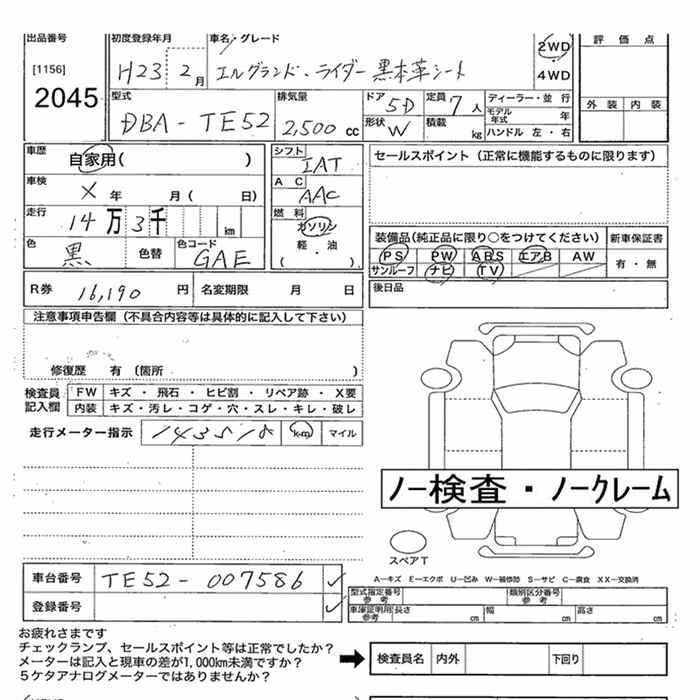 出品番号 初度登録年月 車名・グレード 評価点
[1156] H23 2月 エルグランド・ライダー 黒本革シート 2WD
4WD
2045 型式 排気量 ドア 5D 定員 7人 ディーラー・並行 外装 内装
DBA-TE52 2,500cc 形状 W 積載 kg モデル年式 年
ハンドル 左・右
車歴 自家用( ) シフト IAT セールスポイント(正常に機能するものに限ります)
車検 X 年 月( 日) AC AAC
走行 14万 3千 km 燃料 ガソリン
軽・油
( ) 装備品(純正品に限り○をつけてください) 新車保証書
色 黒 色替 色コード GAE PS PW ABS エアB AW 有・無
サンルーフ ナビ TV
R券 16,190円 名変期限 月 日 後日品
注意事項申告欄(不具合内容等は具体的に記入して下さい)
修復歴 有(箇所 )
検査員記入欄 FW キズ・飛石・ヒビ割・リペア跡・X要
内装 キズ・汚レ・コゲ・穴・スレ・キレ・破レ
走行メーター指示 143518 km マイル
ノー検査・ノークレーム
スペアT
A―キズ E―エクボ U―凹み W―補修跡 S―サビ C―腐食 XX―交換済
車台番号 TE52-007586 ✓ 型式指定番号参考 類別区分番号参考
登録番号 ✓ 車庫証明用参考 長さ cm 幅 cm 高さ cm
お疲れさまです
チェックランプ、セールスポイント等は正常でしたか?
メーターは記入と現車の差が1,000km未満ですか? 検査員名 内外 下回り
5ケタアナログメーターではありませんか?